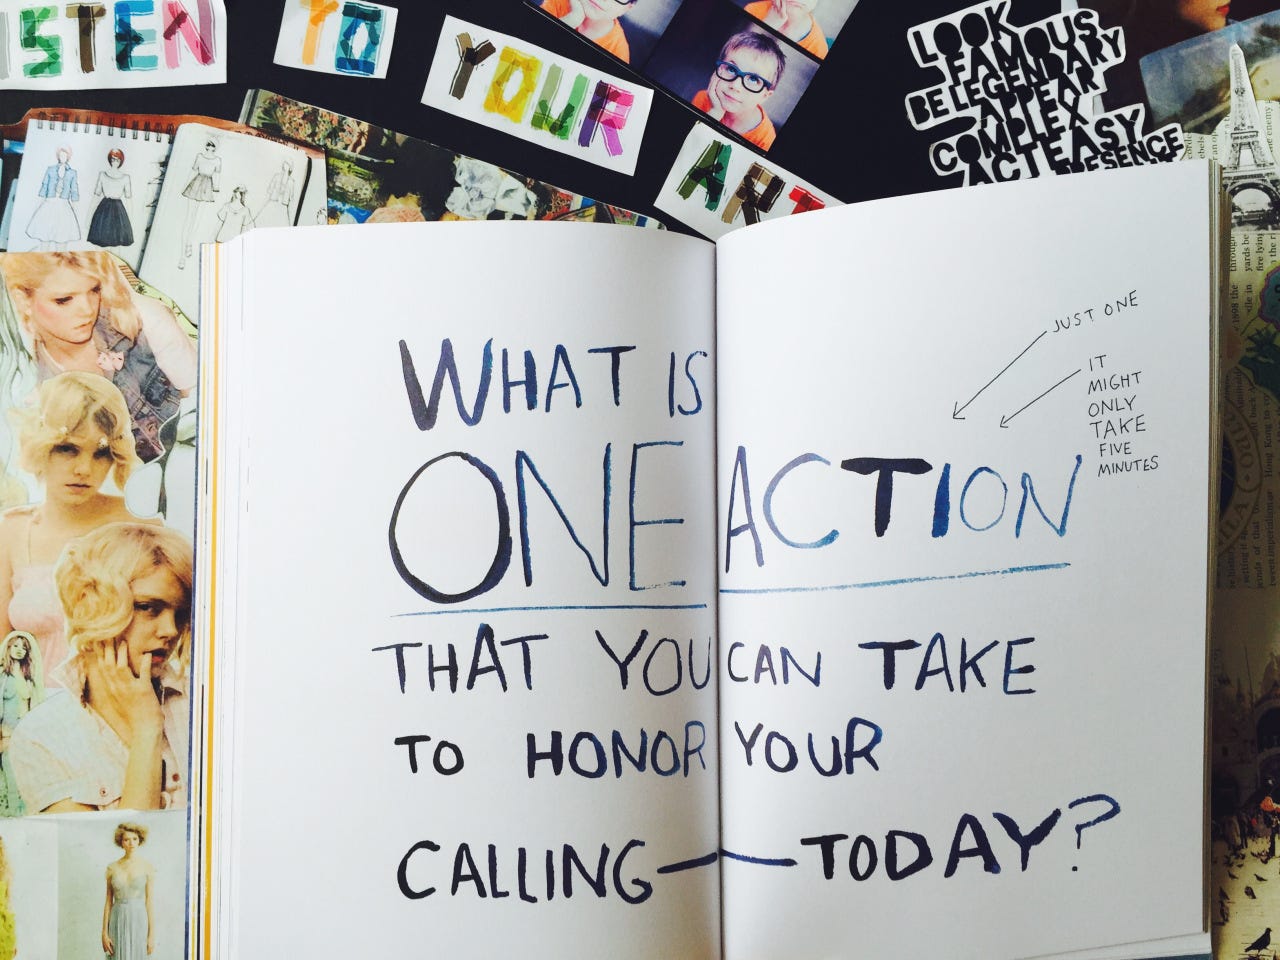 STEN TO YOUR ART
LOOK
FAMOUS
BE LEGENDARY
APPEAR
COMPLEX
ACT EASY
JUST ONE
IT
MIGHT
ONLY
TAKE
FIVE
MINUTES
WHAT IS
ONE ACTION
THAT YOU CAN TAKE
TO HONOR YOUR
CALLING—TODAY?